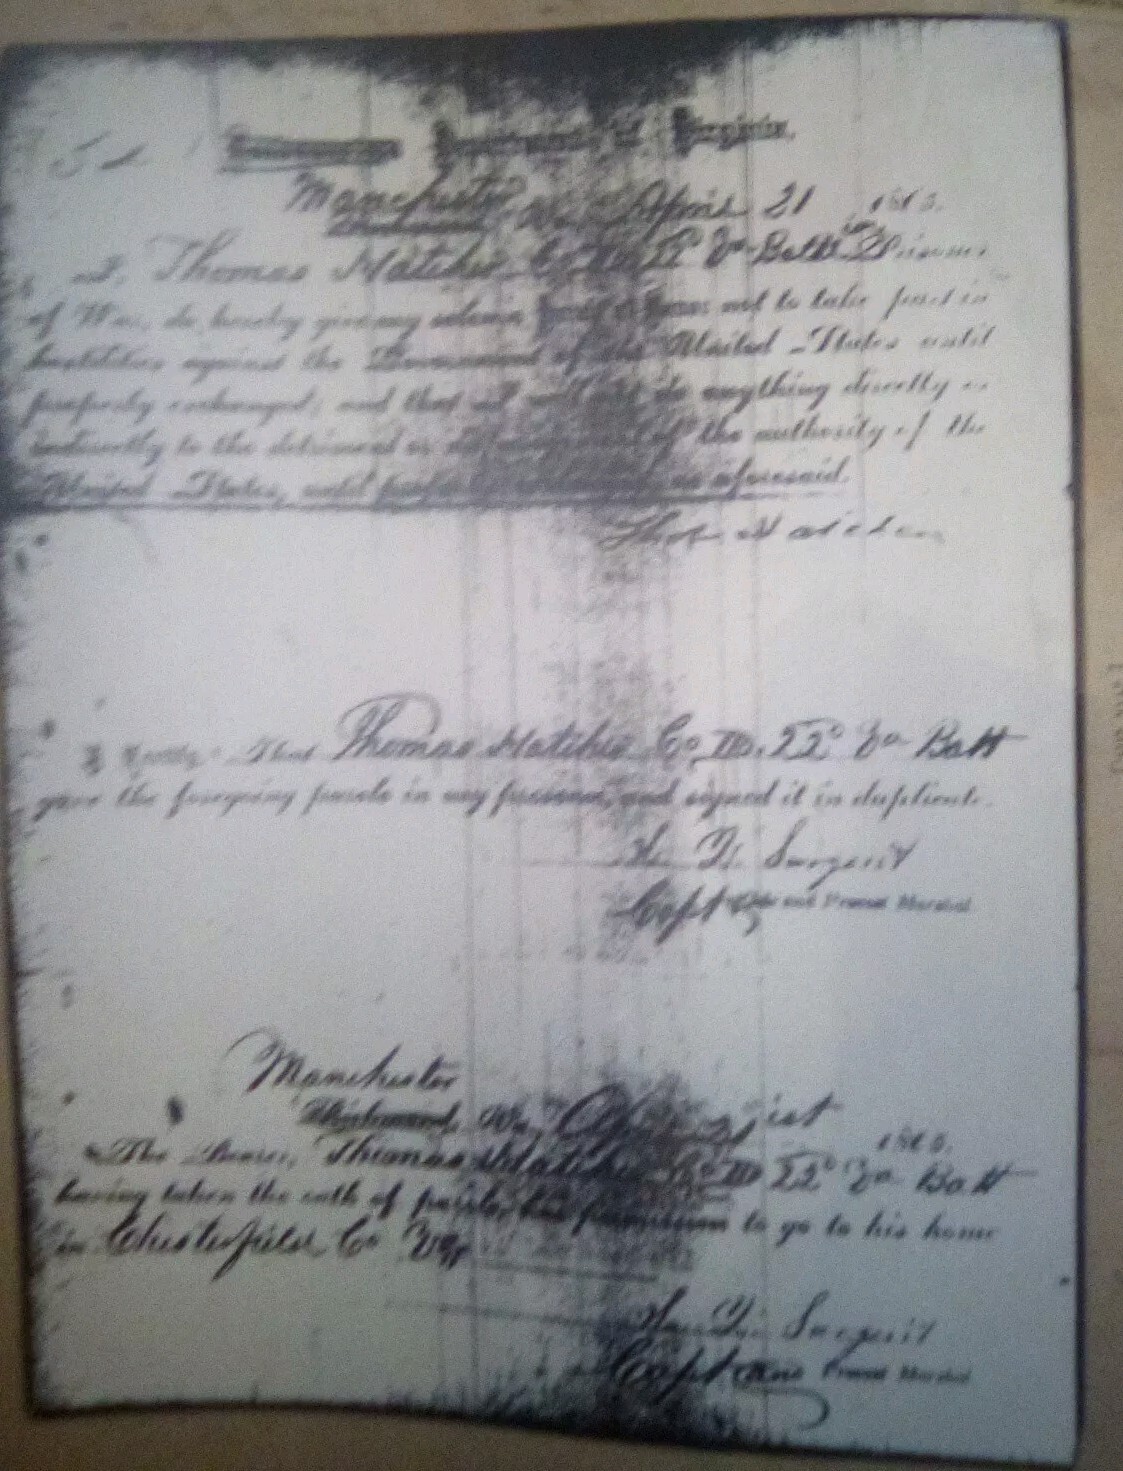 Department of Virginia,
Manchester Va. April 21 1865.
I, Thomas Hatcher Co D. 22d Va Batt Prisoner
of War, do hereby give my solemn parole of honor not to take part in
hostilities against the Government of the United States until
properly exchanged; and that I will not do anything directly or
indirectly to the detriment or of the authority of the
United States, until properly exchanged as aforesaid.
Thos Hatcher
I certify That Thomas Hatcher Co D. 22d Va Batt
gave the foregoing parole in my presence, and signed it in duplicate.
Sargent
Capt and Provost Marshal
Manchester
Richmond, Va., April 21 ist 1865.
The Bearer, Thomas Hatcher Co D 22d Va Batt
having taken the oath of parole, has permission to go to his home
in Chesterfield Co Va
Sargent
Capt and Provost Marshal